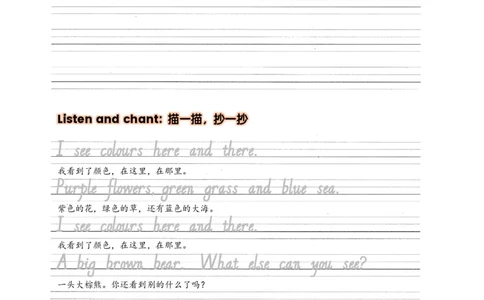 Listen and chant: 描一描，抄一抄
I see colours here and there.
我看到了颜色，在这里，在那里。
Purple flowers, green grass and blue sea.
紫色的花，绿色的草，还有蓝色的大海。
I see colours here and there.
我看到了颜色，在这里，在那里。
A big brown bear. What else can you see?
一头大棕熊。你还看到别的什么了吗？